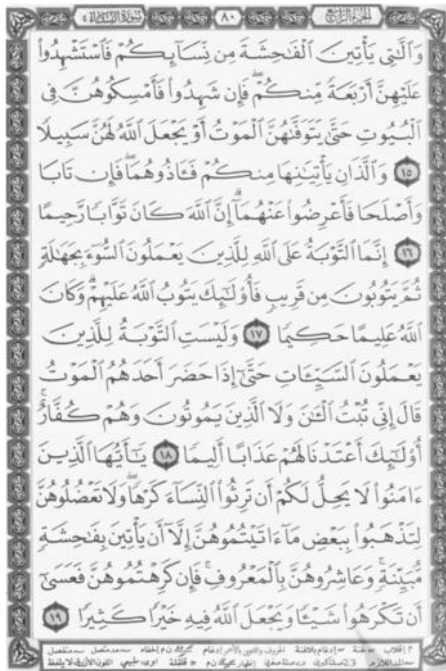 الجزء الرابع ٨٠ سورة النساء ٤
وَٱلَّٰتِى يَأْتِينَ ٱلْفَٰحِشَةَ مِن نِّسَآئِكُمْ فَٱسْتَشْهِدُوا۟
عَلَيْهِنَّ أَرْبَعَةً مِّنكُمْ ۖ فَإِن شَهِدُوا۟ فَأَمْسِكُوهُنَّ فِى
ٱلْبُيُوتِ حَتَّىٰ يَتَوَفَّىٰهُنَّ ٱلْمَوْتُ أَوْ يَجْعَلَ ٱللَّهُ لَهُنَّ سَبِيلًا
١٥ وَٱلَّذَانِ يَأْتِيَٰنِهَا مِنكُمْ فَـَٔاذُوهُمَا ۖ فَإِن تَابَا
وَأَصْلَحَا فَأَعْرِضُوا۟ عَنْهُمَآ ۗ إِنَّ ٱللَّهَ كَانَ تَوَّابًا رَّحِيمًا
١٦ إِنَّمَا ٱلتَّوْبَةُ عَلَى ٱللَّهِ لِلَّذِينَ يَعْمَلُونَ ٱلسُّوٓءَ بِجَهَٰلَةٍ
ثُمَّ يَتُوبُونَ مِن قَرِيبٍ فَأُو۟لَٰٓئِكَ يَتُوبُ ٱللَّهُ عَلَيْهِمْ ۗ وَكَانَ
ٱللَّهُ عَلِيمًا حَكِيمًا ١٧ وَلَيْسَتِ ٱلتَّوْبَةُ لِلَّذِينَ
يَعْمَلُونَ ٱلسَّيِّـَٔاتِ حَتَّىٰٓ إِذَا حَضَرَ أَحَدَهُمُ ٱلْمَوْتُ
قَالَ إِنِّى تُبْتُ ٱلْـَٰٔنَ وَلَا ٱلَّذِينَ يَمُوتُونَ وَهُمْ كُفَّارٌ ۚ
أُو۟لَٰٓئِكَ أَعْتَدْنَا لَهُمْ عَذَابًا أَلِيمًا ١٨ يَٰٓأَيُّهَا ٱلَّذِينَ
ءَامَنُوا۟ لَا يَحِلُّ لَكُمْ أَن تَرِثُوا۟ ٱلنِّسَآءَ كَرْهًا ۖ وَلَا تَعْضُلُوهُنَّ
لِتَذْهَبُوا۟ بِبَعْضِ مَآ ءَاتَيْتُمُوهُنَّ إِلَّآ أَن يَأْتِينَ بِفَٰحِشَةٍ
مُّبَيِّنَةٍ ۚ وَعَاشِرُوهُنَّ بِٱلْمَعْرُوفِ ۚ فَإِن كَرِهْتُمُوهُنَّ فَعَسَىٰٓ
أَن تَكْرَهُوا۟ شَيْـًٔا وَيَجْعَلَ ٱللَّهُ فِيهِ خَيْرًا كَثِيرًا ١٩